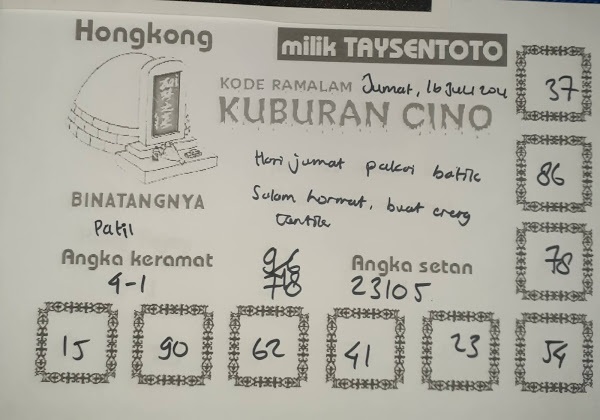 Hongkong
milik TAYSENTOTO
KODE RAMALAM Jumat, 16 Juli 2021
KUBURAN CINO
Hari jumat pakai batik
Salam hormat, buat orang
cantik
BINATANGNYA
Patil
Angka keramat
9-1
96
78
Angka setan
23105
37
86
78
15
90
62
41
23
54